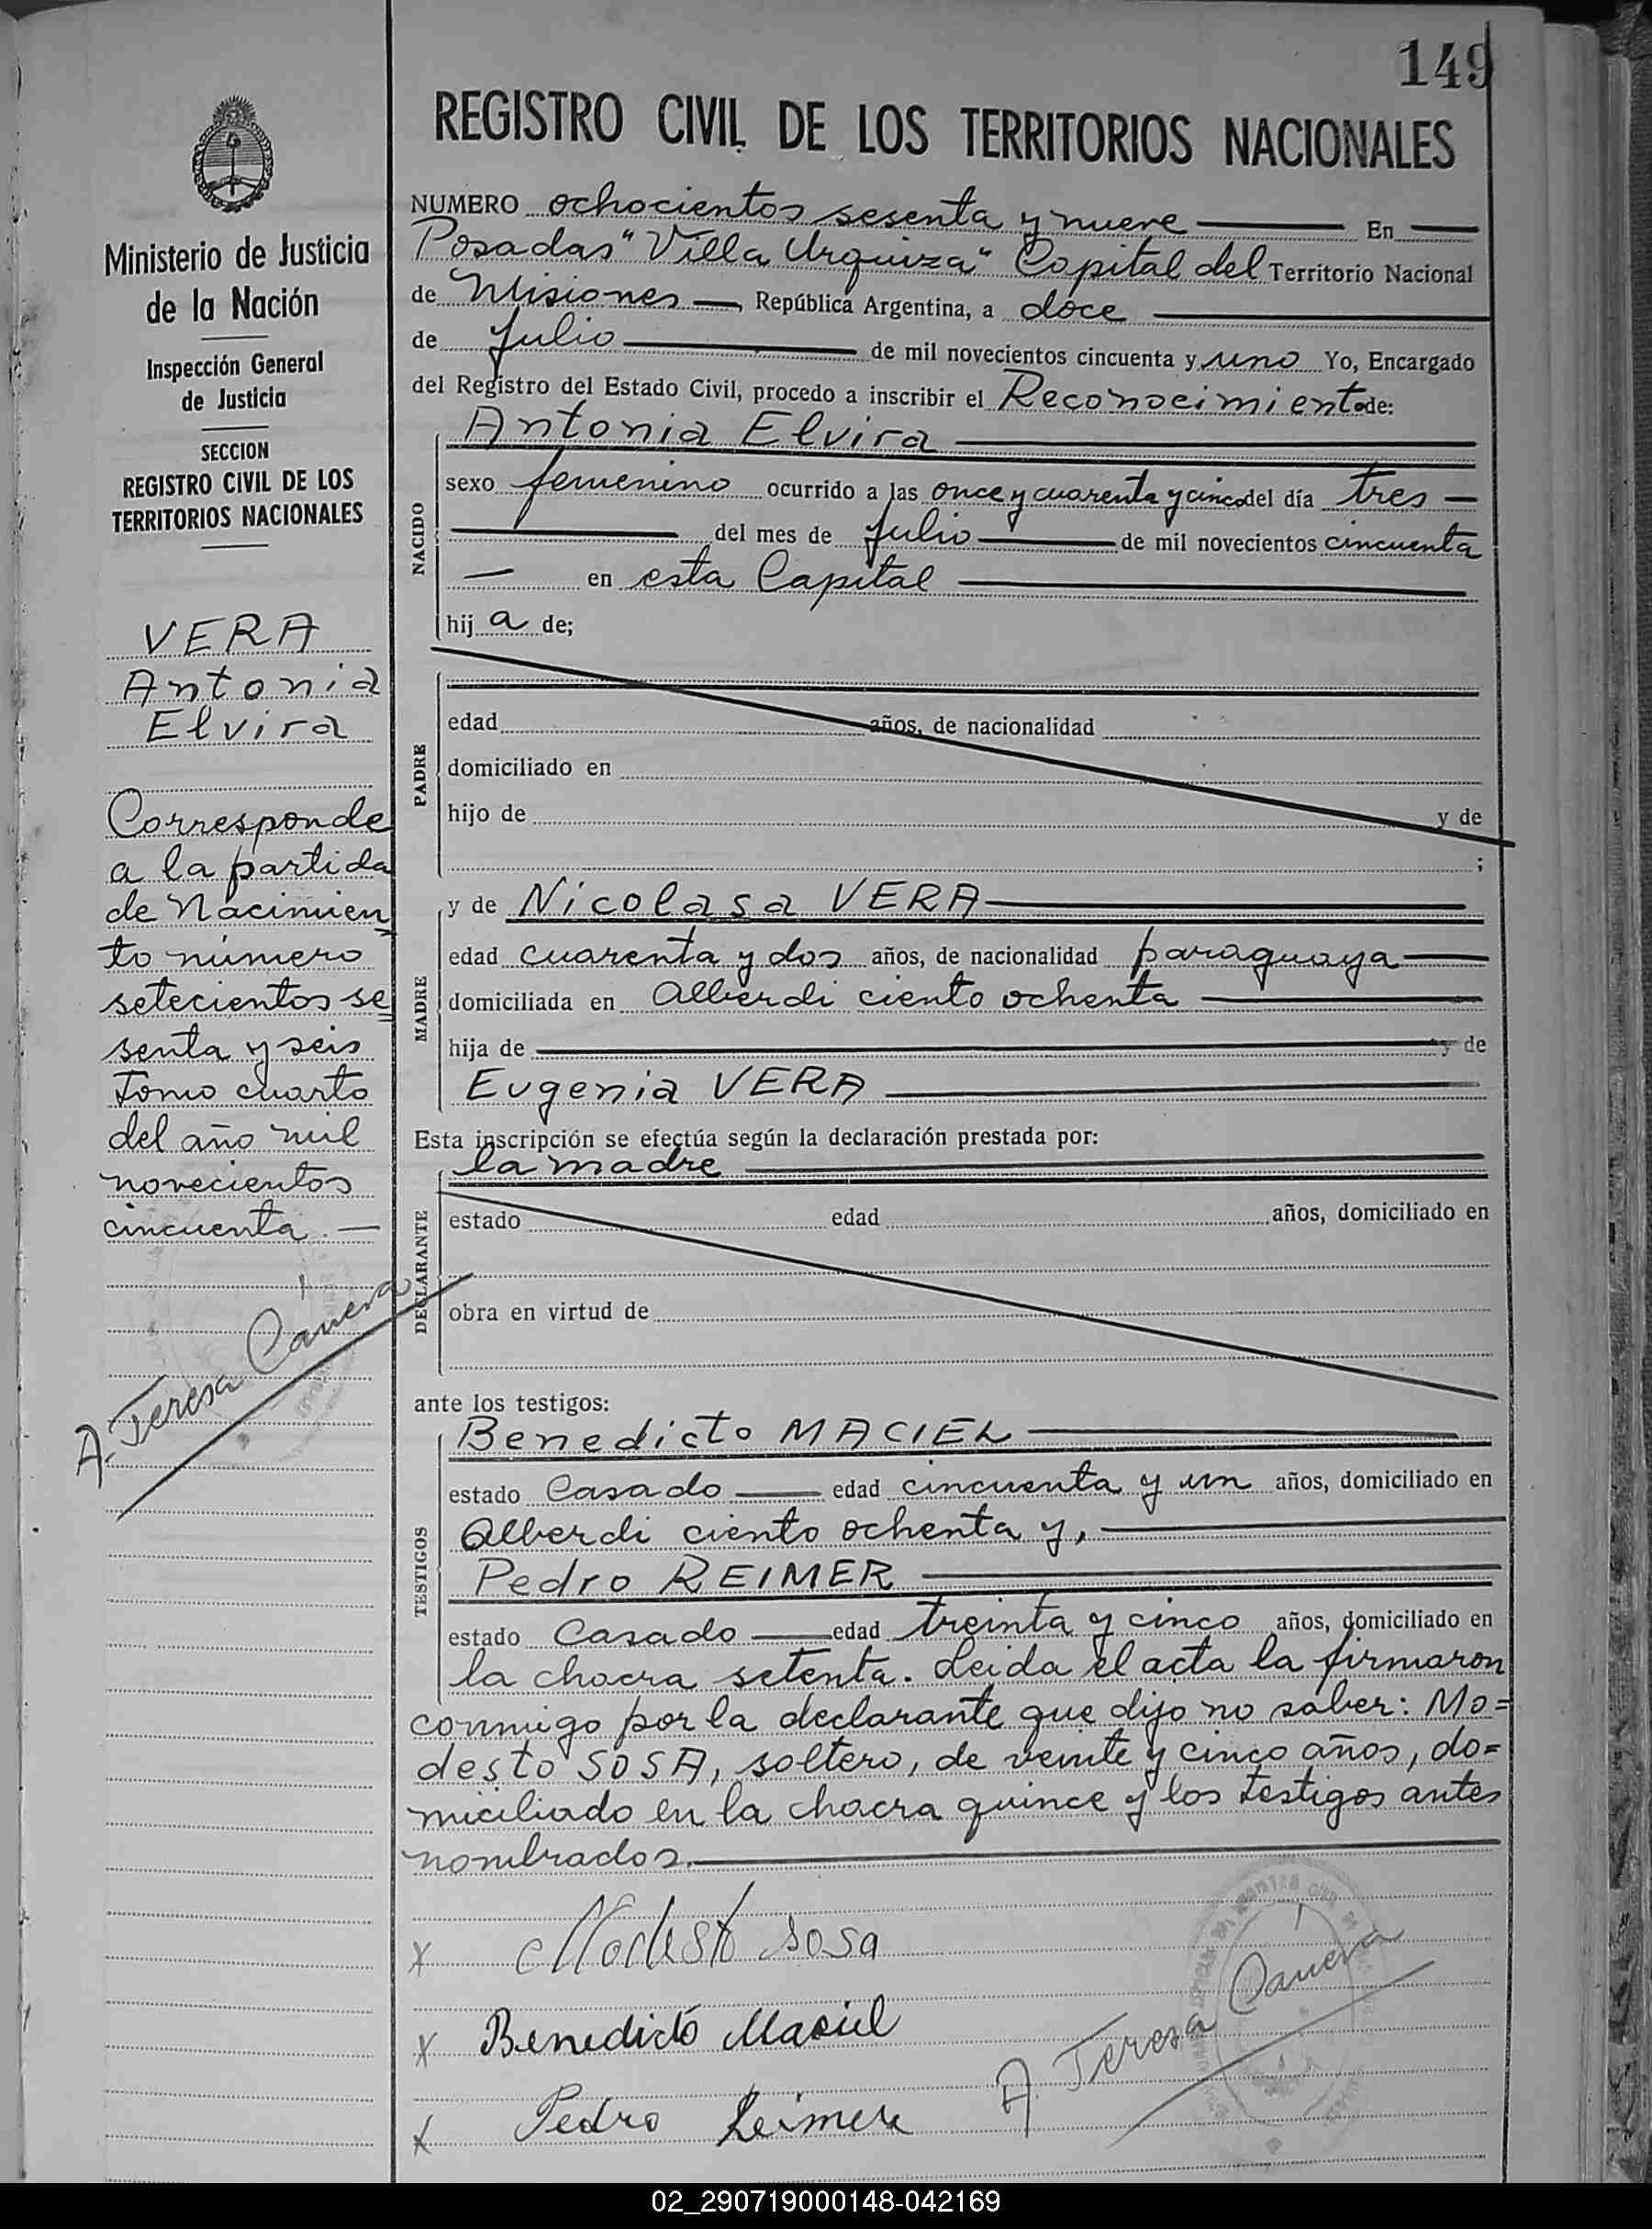 149
REGISTRO CIVIL DE LOS TERRITORIOS NACIONALES
Ministerio de Justicia
de la Nación
Inspección General
de Justicia
SECCION
REGISTRO CIVIL DE LOS
TERRITORIOS NACIONALES
VERA
Antonia
Elvira
Corresponde
a la partida
de Nacimien
to número
setecientos se
senta y seis
Tomo cuarto
del año mil
novecientos
cincuenta. —
A. Teresa Cánera
NUMERO ochocientos sesenta y nueve — En —
Posadas "Villa Urquiza" Capital del Territorio Nacional
de Misiones —, República Argentina, a doce
de Julio — de mil novecientos cincuenta y uno Yo, Encargado
del Registro del Estado Civil, procedo a inscribir el Reconocimiento de:
NACIDO
Antonia Elvira —
sexo femenino ocurrido a las once y cuarenta y cinco del día tres —
— del mes de Julio — de mil novecientos cincuenta
— en esta Capital —
hij a de;
PADRE
edad años, de nacionalidad
domiciliado en
hijo de y de
;
MADRE
y de Nicolasa VERA —
edad cuarenta y dos años, de nacionalidad paraguaya —
domiciliada en Alberdi ciento ochenta —
hija de — y de
Eugenia VERA —
Esta inscripción se efectúa según la declaración prestada por:
la madre —
DECLARANTE
estado edad años, domiciliado en
obra en virtud de
ante los testigos:
TESTIGOS
Benedicto MACIEL —
estado Casado — edad cincuenta y un años, domiciliado en
Alberdi ciento ochenta y, —
Pedro REIMER —
estado Casado — edad treinta y cinco años, domiciliado en
la chacra setenta. Leida el acta la firmaron
conmigo por la declarante que dijo no saber: Mo=
desto SOSA, soltero, de veinte y cinco años, do=
miciliado en la chacra quince y los testigos antes
nombrados. —
x Modesto Sosa
x Benedicto Maciel
x Pedro Reimer
A. Teresa Cánera
02_290719000148-042169